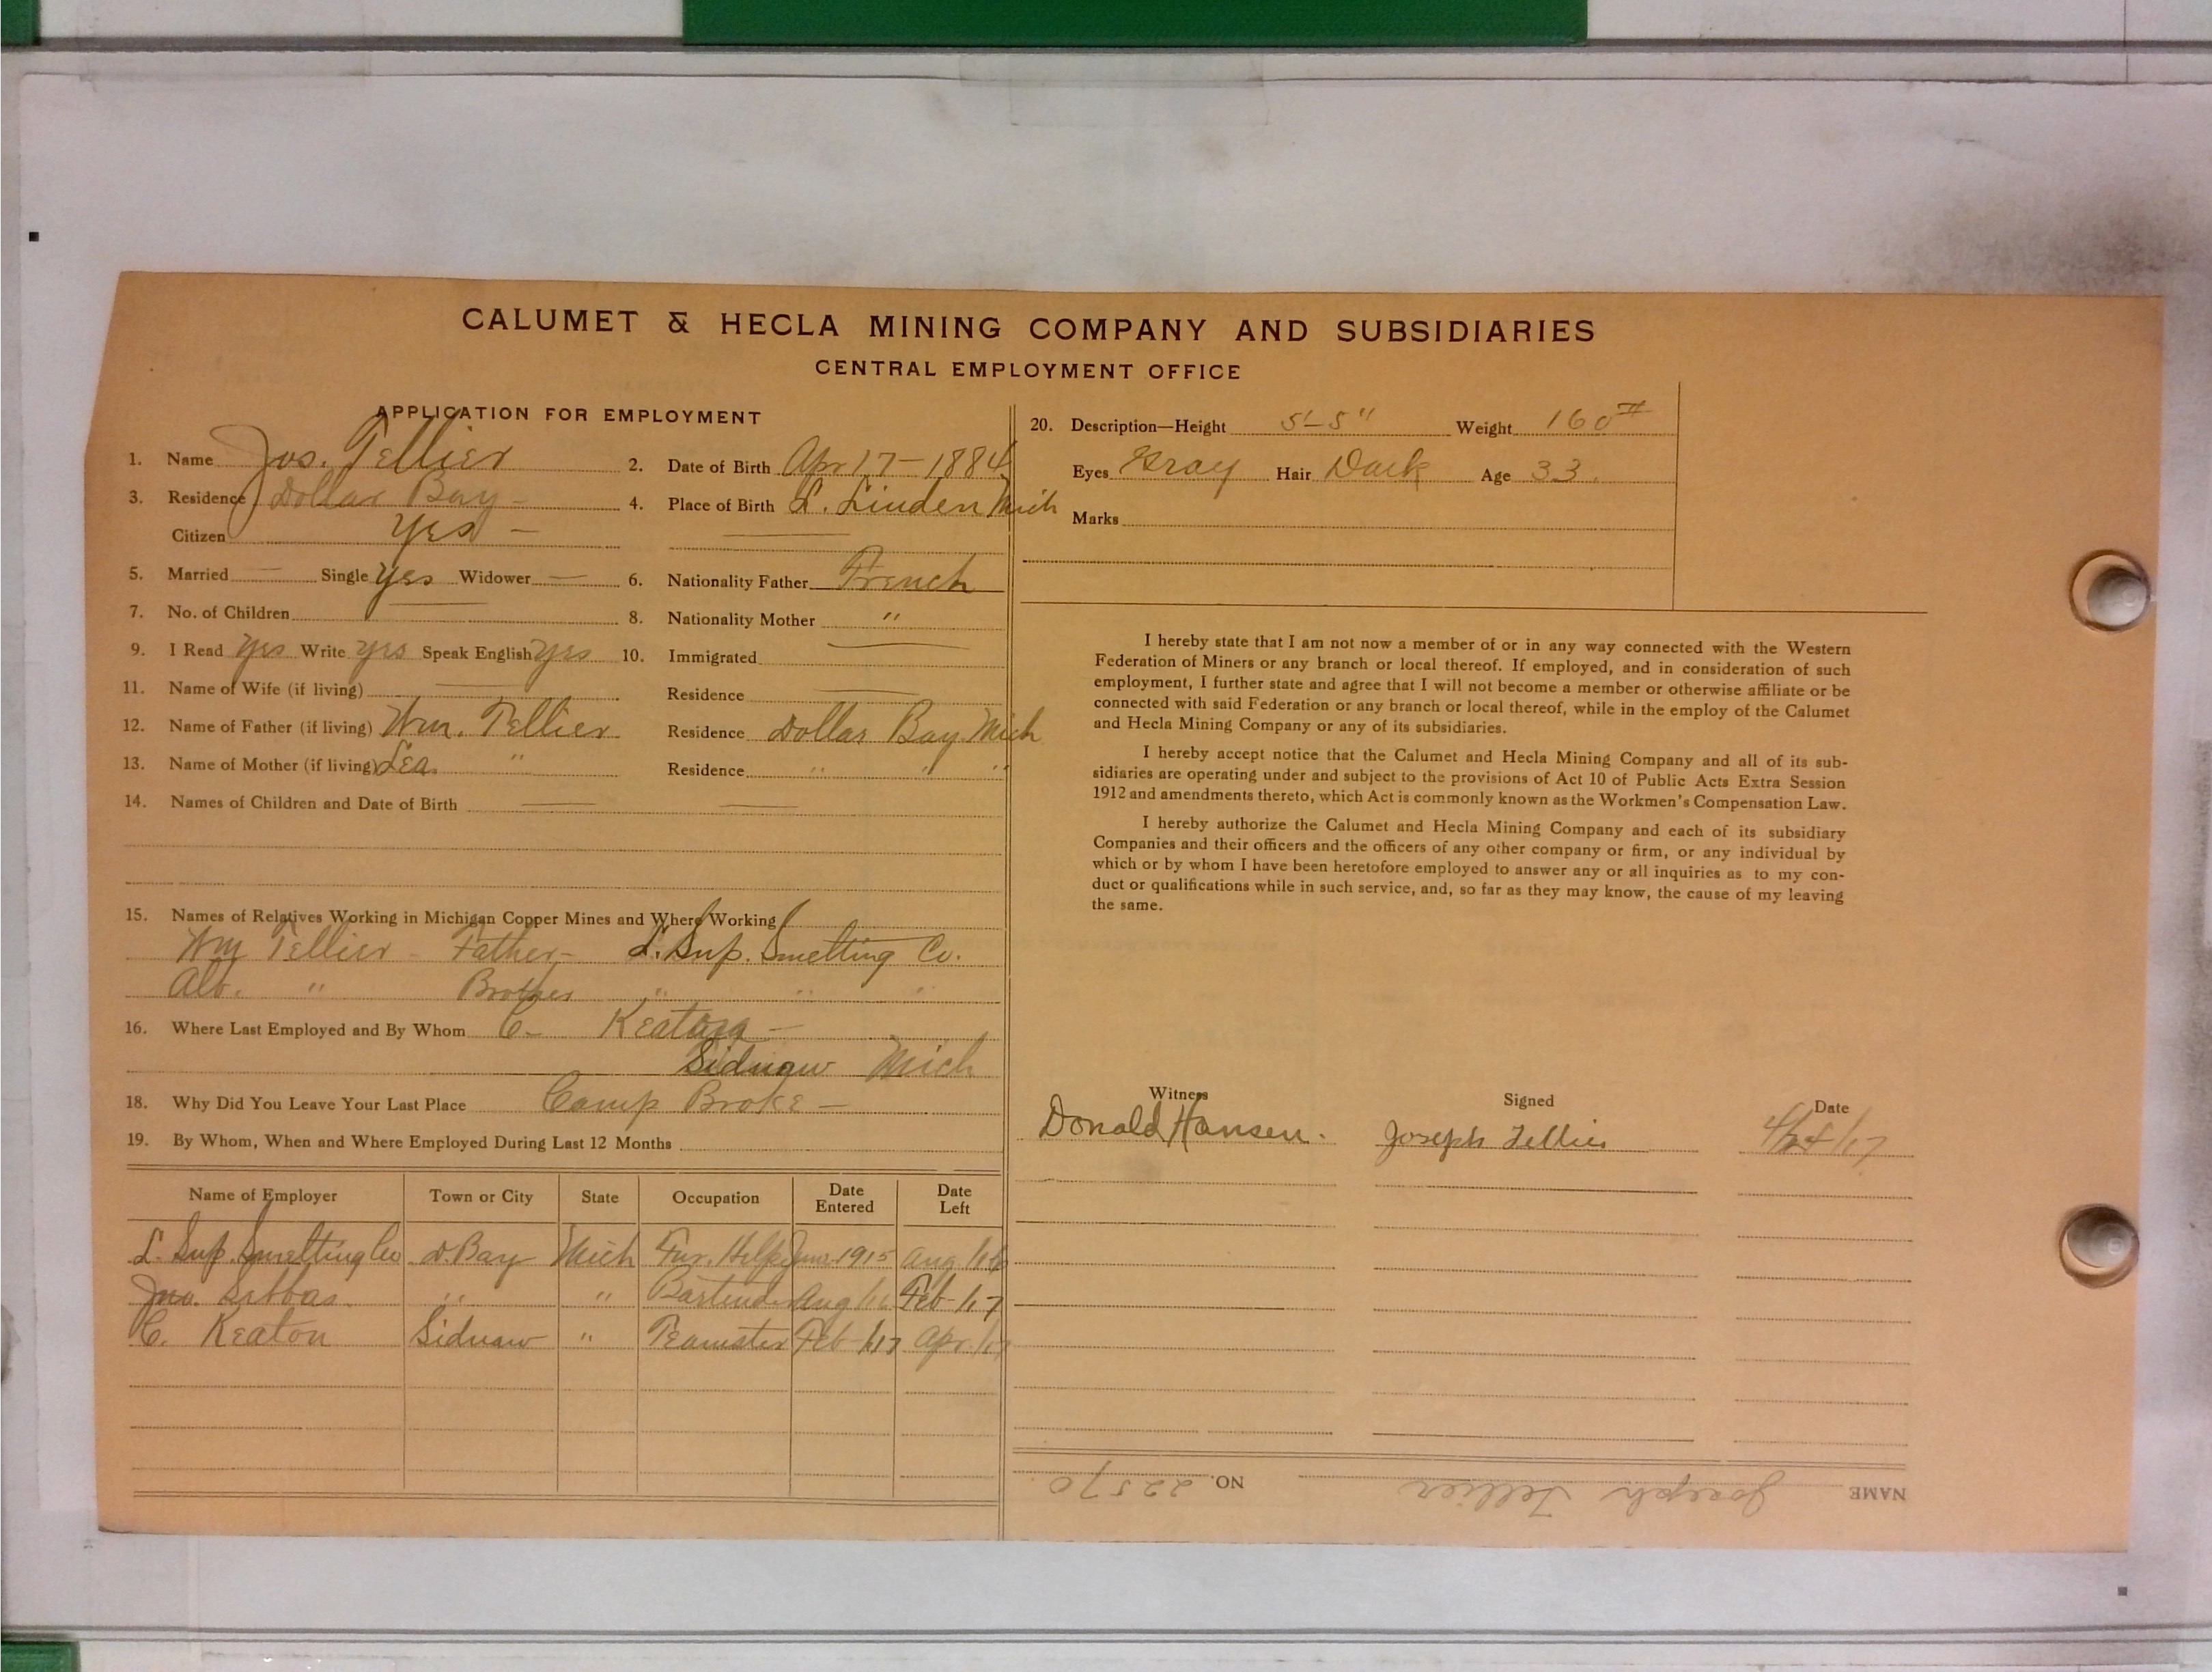 CALUMET & HECLA MINING COMPANY AND SUBSIDIARIES
CENTRAL EMPLOYMENT OFFICE
APPLICATION FOR EMPLOYMENT
1. Name Jos. Tellier 2. Date of Birth Apr 17 - 1884
3. Residence Dollar Bay - 4. Place of Birth L. Linden Mich
Citizen Yes -
5. Married — Single Yes Widower — 6. Nationality Father French
7. No. of Children — 8. Nationality Mother "
9. I Read Yes Write Yes Speak English Yes 10. Immigrated —
11. Name of Wife (if living) — Residence —
12. Name of Father (if living) Wm. Tellier Residence Dollar Bay Mich
13. Name of Mother (if living) Lea " Residence " " "
14. Names of Children and Date of Birth — —
15. Names of Relatives Working in Michigan Copper Mines and Where Working
Wm Tellier - Father - L. Sup. Smelting Co.
Alb. " Brother " " "
16. Where Last Employed and By Whom C. -
Sidnaw Mich
18. Why Did You Leave Your Last Place Camp Broke -
19. By Whom, When and Where Employed During Last 12 Months
Name of Employer Town or City State Occupation Date Entered Date Left
L. Sup. Smelting Co D. Bay Mich Fur. Help 1915 Aug /16
Jno. " " Bartender Aug /16 Feb - /17
C. Keaton Sidnaw " Teamster Feb - /17 Apr /17
20. Description—Height 5'-5" Weight 160#
Eyes Gray Hair Dark Age 33.
Marks
I hereby state that I am not now a member of or in any way connected with the Western
Federation of Miners or any branch or local thereof. If employed, and in consideration of such
employment, I further state and agree that I will not become a member or otherwise affiliate or be
connected with said Federation or any branch or local thereof, while in the employ of the Calumet
and Hecla Mining Company or any of its subsidiaries.
I hereby accept notice that the Calumet and Hecla Mining Company and all of its sub-
sidiaries are operating under and subject to the provisions of Act 10 of Public Acts Extra Session
1912 and amendments thereto, which Act is commonly known as the Workmen's Compensation Law.
I hereby authorize the Calumet and Hecla Mining Company and each of its subsidiary
Companies and their officers and the officers of any other company or firm, or any individual by
which or by whom I have been heretofore employed to answer any or all inquiries as to my con-
duct or qualifications while in such service, and, so far as they may know, the cause of my leaving
the same.
Witness Signed Date
Donald Hansen. Joseph Tellier
NAME Joseph Tellier NO. 22570